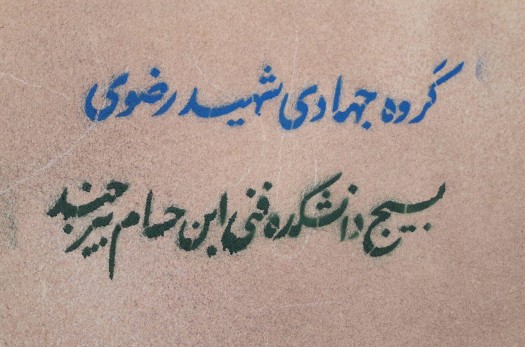 گروه جهادی شهید رضوی
بسیج دانشکده فنی ابن حسام بیرجند